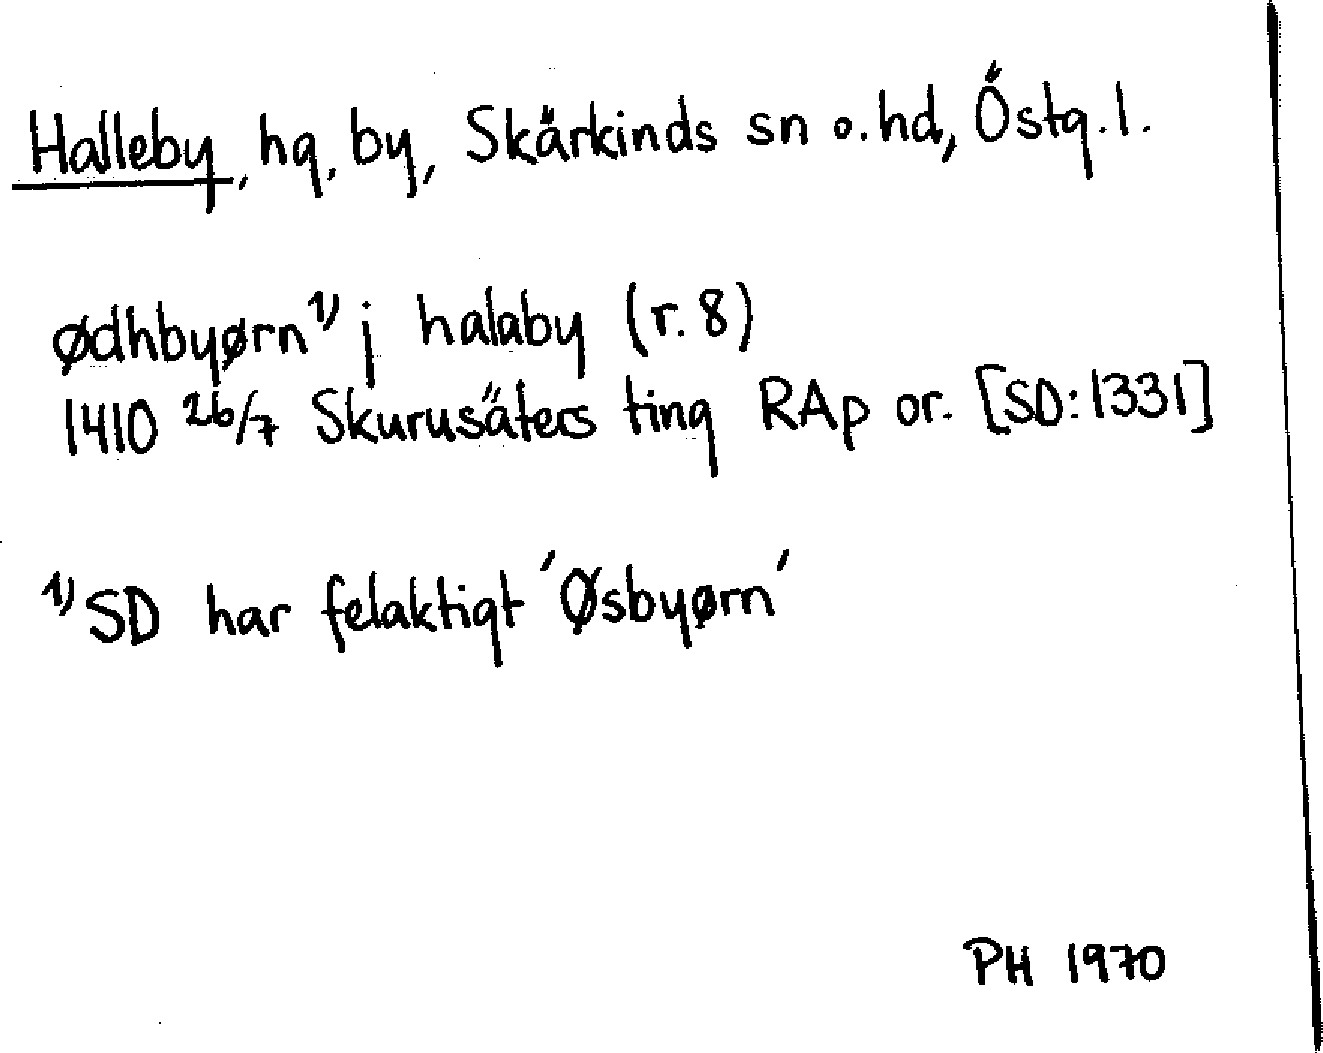 Halleby, hg, by, Skärkinds sn o. hd, Östg. l.
ødhbyørn 1) j halaby (r. 8)
1410 26/7 Skurusäters ting RAp or. [SD: 1331]
1) SD har felaktigt 'Øsbyørn'
PH 1970